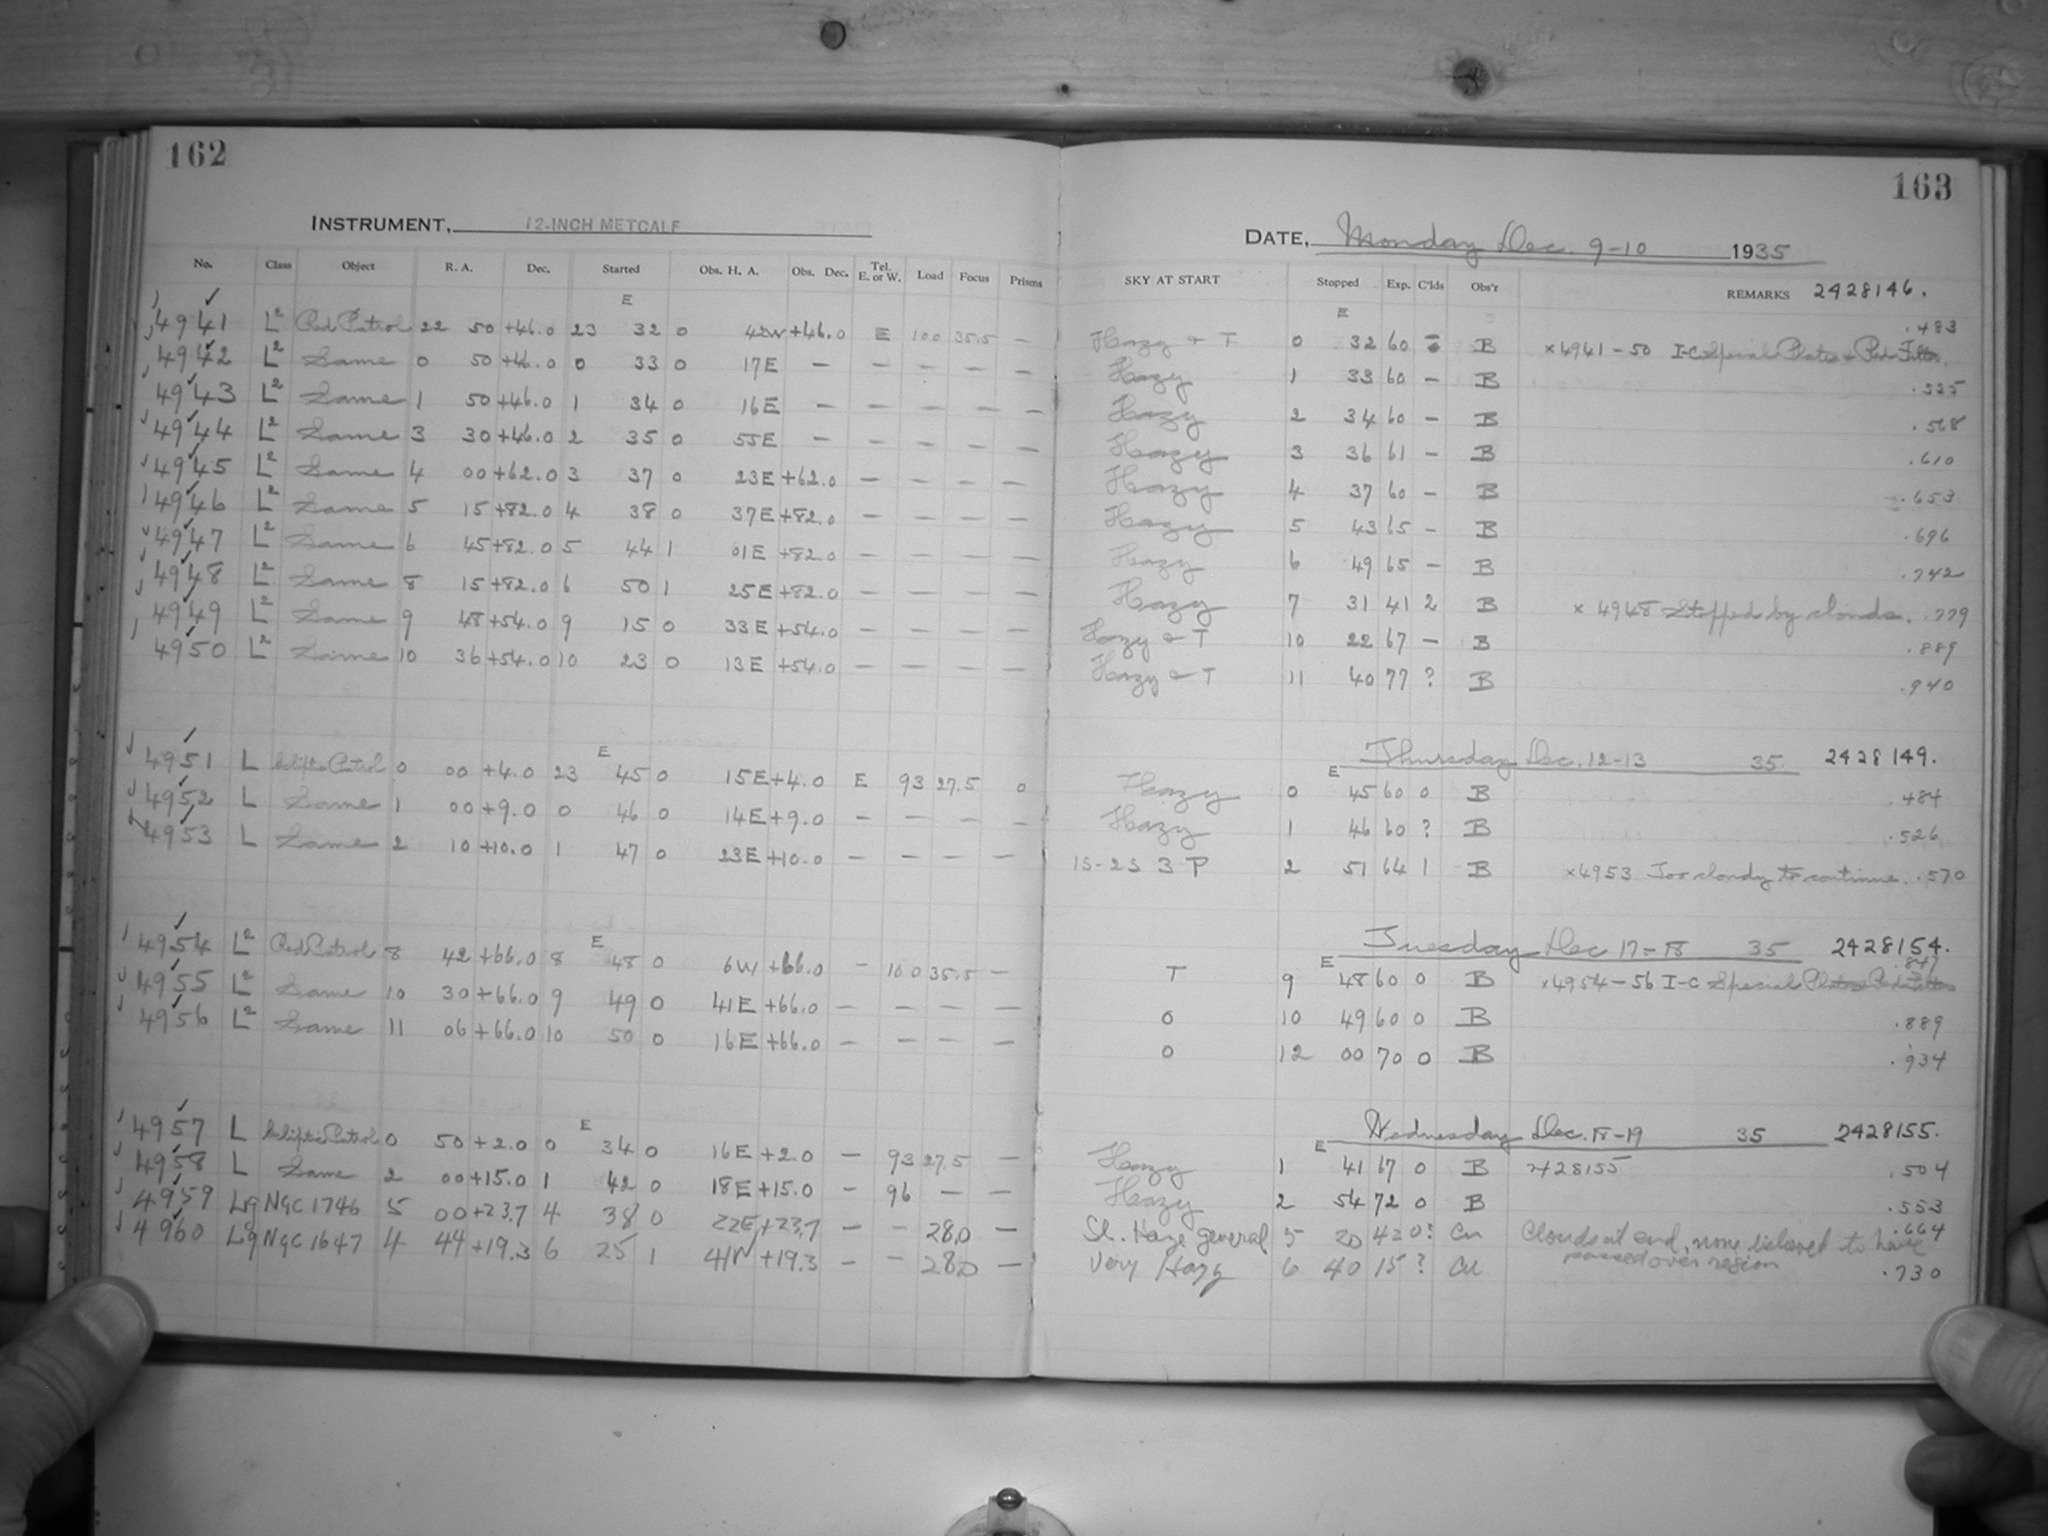 162
INSTRUMENT, 12-INCH METCALF
No. Class Object R. A. Dec. Started Obs. H. A. Obs. Dec. Tel. E. or W. Load Focus Prisms
E
4941 L2 Red Patrol 22 50 +46.0 23 32 0 42W +46.0 E 100 35.5 —
4942 L2 Same 0 50 +46.0 0 33 0 17E — — — — —
4943 L2 Same 1 50 +46.0 1 34 0 16E — — — — —
4944 L2 Same 3 30 +46.0 2 35 0 55E — — — — —
4945 L2 Same 4 00 +62.0 3 37 0 23E +62.0 — — — —
4946 L2 Same 5 15 +82.0 4 38 0 37E +82.0 — — — —
4947 L2 Same 6 45 +82.0 5 44 1 01E +82.0 — — — —
4948 L2 Same 8 15 +82.0 6 50 1 25E +82.0 — — — —
4949 L2 Same 9 48 +54.0 9 15 0 33E +54.0 — — — —
4950 L2 Same 10 36 +54.0 10 23 0 13E +54.0 — — — —
E
4951 L Ecliptic Patrol 0 00 +4.0 23 45 0 15E +4.0 E 93 27.5 0
4952 L Same 1 00 +9.0 0 46 0 14E +9.0 — — — —
4953 L Same 2 10 +10.0 1 47 0 23E +10.0 — — — —
E
4954 L2 Red Patrol 8 42 +66.0 8 48 0 6W +66.0 — 100 35.5 —
4955 L2 Same 10 30 +66.0 9 49 0 41E +66.0 — — — —
4956 L2 Same 11 06 +66.0 10 50 0 16E +66.0 — — — —
E
4957 L Ecliptic Patrol 0 50 +2.0 0 34 0 16E +2.0 — 93 27.5 —
4958 L Same 2 00 +15.0 1 42 0 18E +15.0 — 96 — —
4959 Lg NGC 1746 5 00 +23.7 4 38 0 22E +23.7 — — 28.0 —
4960 Lg NGC 1647 4 44 +19.3 6 25 1 41W +19.3 — — 28.0 —
163
DATE, Monday Dec. 9-10 1935
SKY AT START Stopped Exp. C'lds Obs'r REMARKS 2428146.
E
Hazy & T 0 32 60 — B ×4941-50 I-C Special Plates & Red Filter .483
Hazy 1 33 60 — B .525
Hazy 2 34 60 — B .568
Hazy 3 36 61 — B .610
Hazy 4 37 60 — B .653
Hazy 5 43 65 — B .696
Hazy 6 49 65 — B .742
Hazy 7 31 41 2 B × 4948 Stopped by clouds. .779
Hazy & T 10 22 67 — B .889
Hazy & T 11 40 77 ? B .940
Thursday Dec. 12-13 35 2428149.
E
Hazy 0 45 60 0 B .484
Hazy 1 46 60 ? B .526
1S-2S 3 P 2 51 64 1 B ×4953 Too cloudy to continue. .570
Tuesday Dec 17-18 35 2428154.
E
T 9 48 60 0 B ×4954-56 I-C Special Plates Red Filter .847
0 10 49 60 0 B .889
0 12 00 70 0 B .934
Wednesday Dec. 18-19 35 2428155.
E
Hazy 1 41 67 0 B 2428155 .504
Hazy 2 54 72 0 B .553
Sl. Haze general 5 20 42 0? Cu Clouds at end, none believed to have .664
passed over region
Very Hazy 6 40 15 ? Cu .730